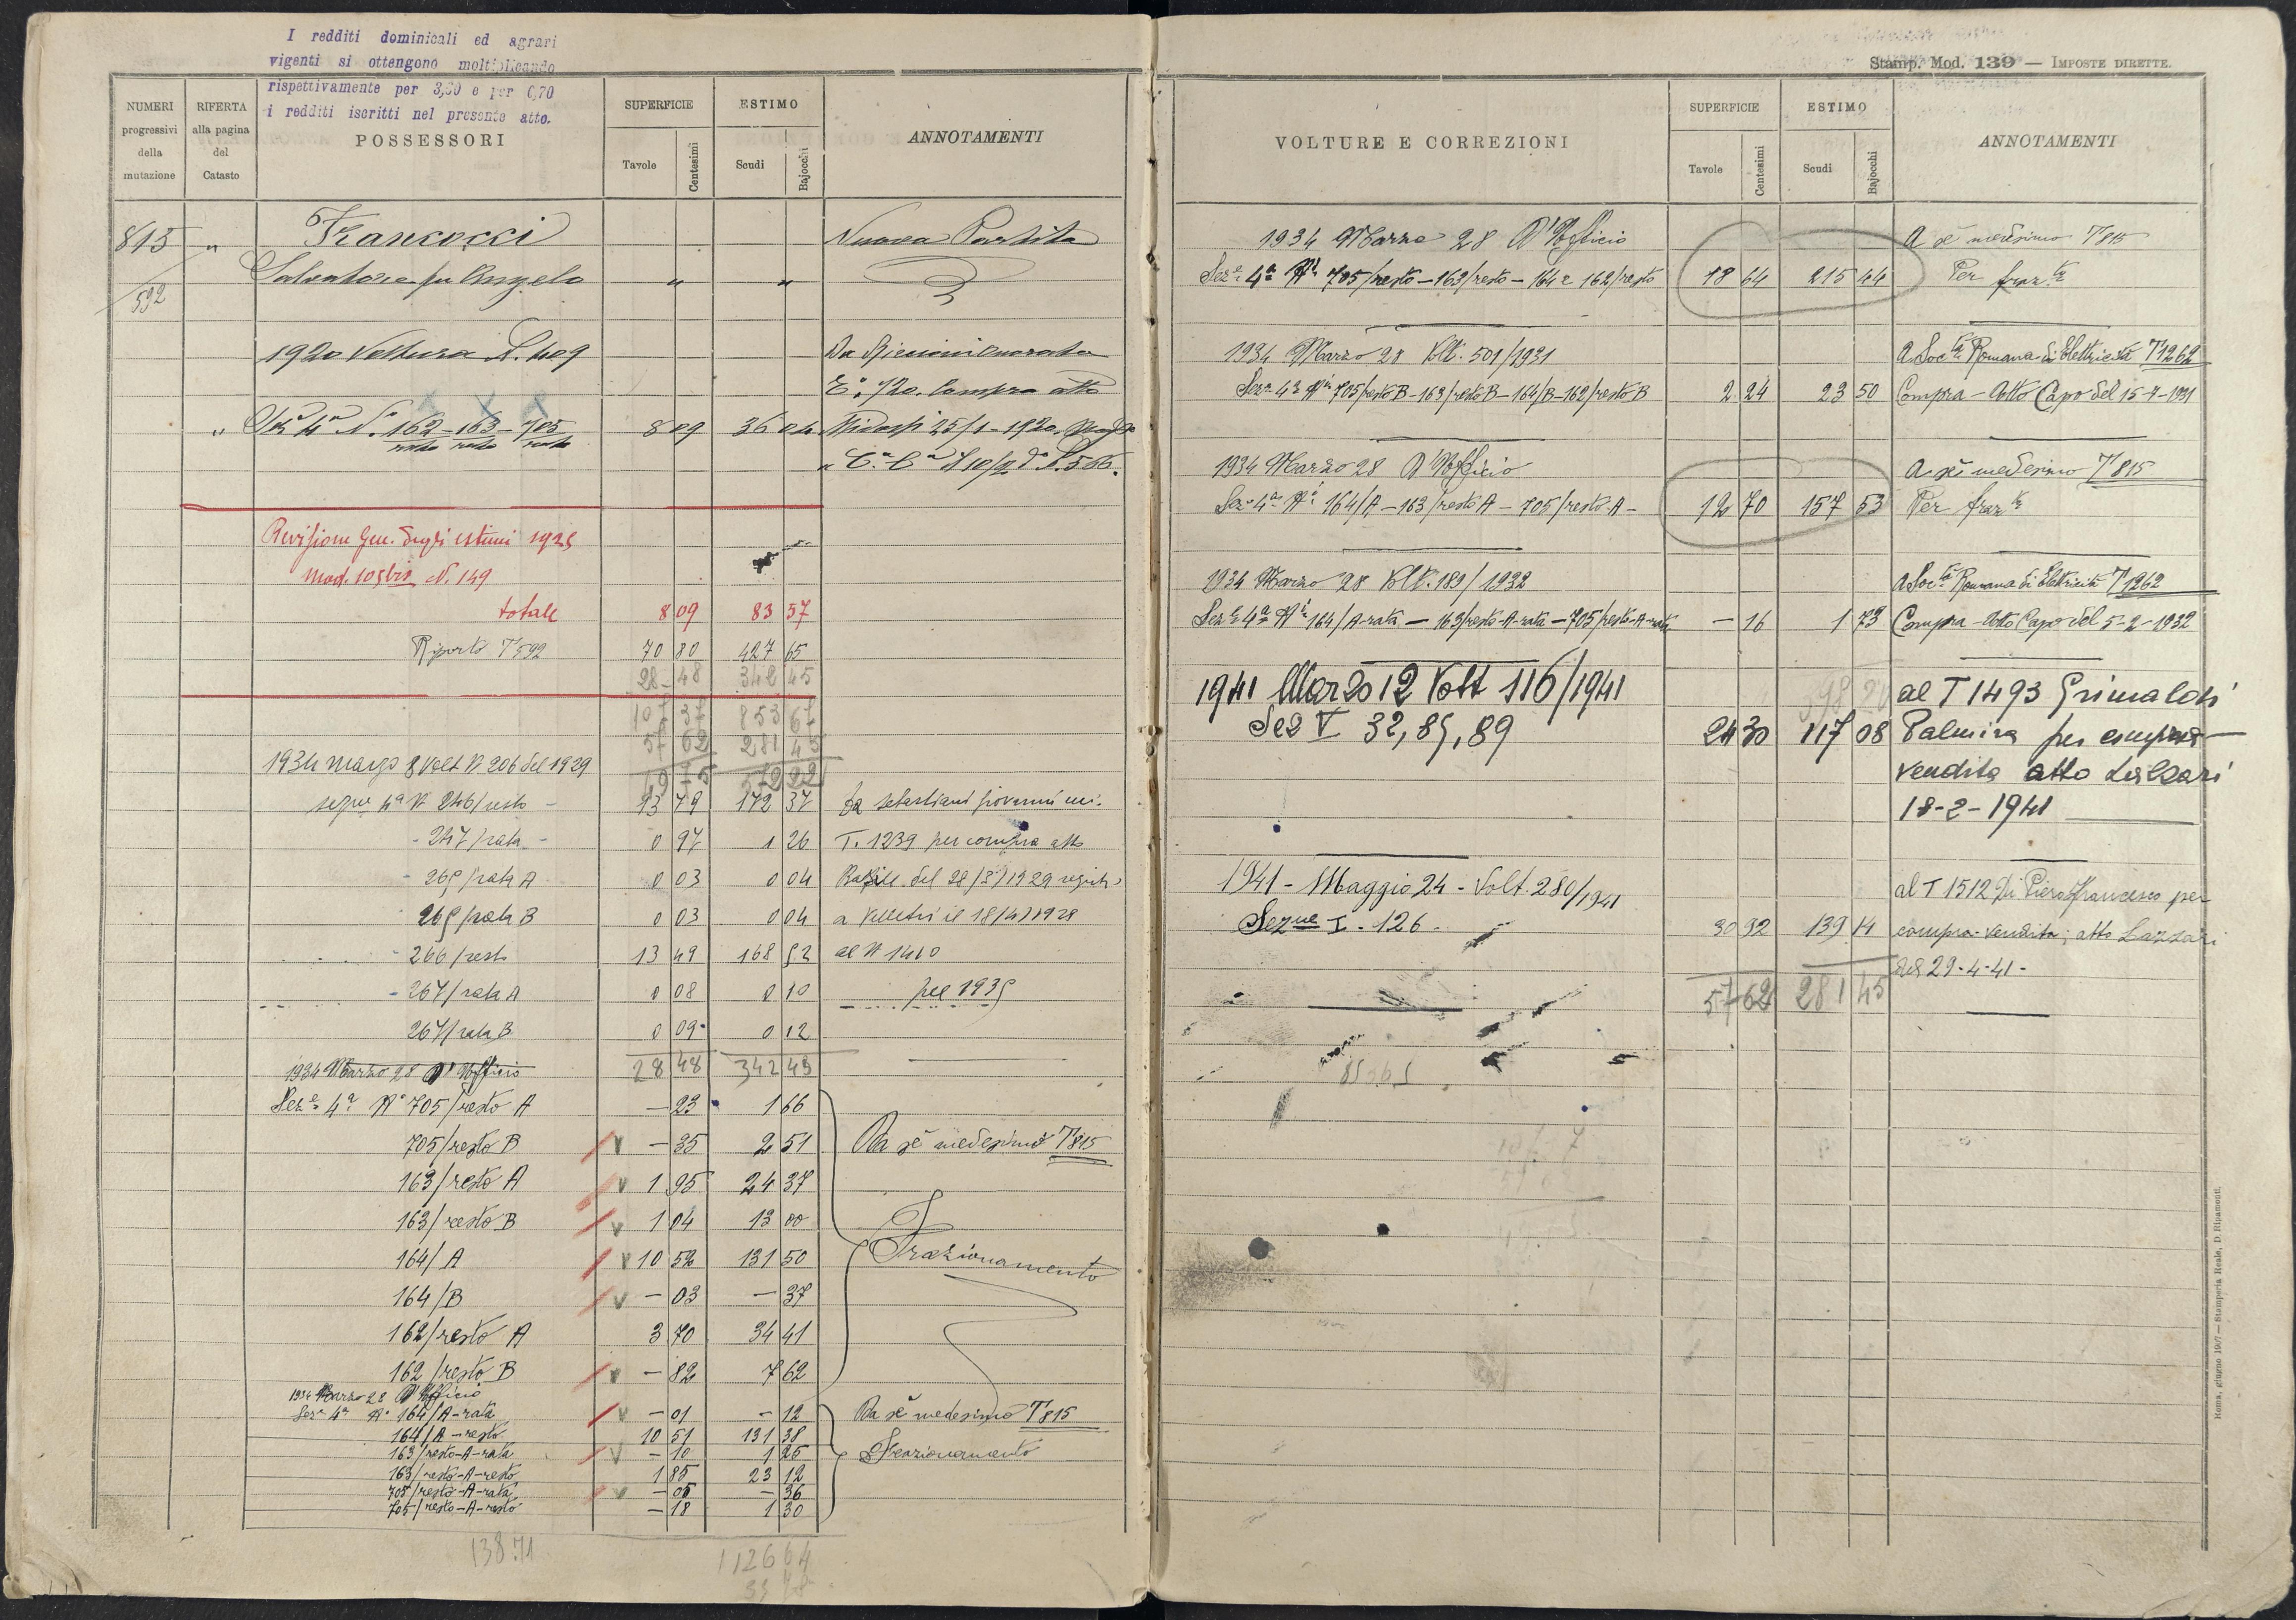 I redditi dominicali ed agrari
vigenti si ottengono moltiplicando
rispettivamente per 3,50 e per 0,70
i redditi iscritti nel presente atto.
NUMERI progressivi della mutazione
RIFERTA alla pagina del Catasto
POSSESSORI
SUPERFICIE
Tavole
Centesimi
ESTIMO
Scudi
Bajocchi
ANNOTAMENTI
815 " Francocci Nuova Partita
Salvatore fu Angelo " "
592
1920 Voltura N. 409 Da
E. 720. Compra atto
" Sez 4ª N. 162 - 163 - 705 8 09 36 04 25/1 - 1920
resto resto resto
Revisione Gen. degli estimi 1925
Mod. 105 bis N. 149
totale 8 09 83 57
Riporto T 592 70 80 427 65
28 48 342 45
107 37 853 67
57 62 281 45
49 75 572 22
1934 marzo 8 Volt N 206 del 1929
sezne 4ª N 246/resto - 13 79 172 37 da Sebastiani Giovanni
- 247/rata - 0 97 1 26 T. 1239 per compra atto
- 265/rata A 0 03 0 04 del 28/3/1929 registr.
265/rata B 0 03 0 04 a Velletri il 18/4/1929
- 266/resto 13 49 168 52 al N 1410
- 267/rata A 0 08 0 10 per 1935
267/rata B 0 09 0 12
28 48 342 45
1934 Marzo 28 D'Ufficio
Seze 4ª N° 705/resto A - 23 1 66
705/resto B V - 35 2 51 Da sè medesimo T 815
163/resto A V 1 95 24 37
163/resto B V 1 04 13 00
164/A V 10 52 131 50 Frazionamento
164/B V - 03 - 37
162/resto A 3 70 34 41
162/resto B V - 82 7 62
1934 Marzo 28 D'Ufficio
Seze 4ª N° 164/A-rata V - 01 - 12 Da sè medesimo T 815
164/A-resto 10 51 131 38
163/resto-A-rata V - 10 1 25 Frazionamento
163/resto-A-resto 1 85 23 12
705/resto-A-rata V - 05 - 36
705/resto-A-resto - 18 1 30
138.71
1126 64
Stamp. Mod. 139 — IMPOSTE DIRETTE.
VOLTURE E CORREZIONI
SUPERFICIE
Tavole
Centesimi
ESTIMO
Scudi
Bajocchi
ANNOTAMENTI
1934 Marzo 28 D'Ufficio A sè medesimo T 815
Seze 4ª Ni 705/resto - 163/resto - 164 e 162/resto 18 64 215 44 Per frazto
1934 Marzo 28 Volt. 501/1931 A Soctà Romana di Elettricità T 1262
Seze 4ª Ni 705/resto B - 163/resto B - 164/B - 162/resto B 2 24 23 50 Compra - Atto Capo del 15-7-1931
1934 Marzo 28 D'Ufficio A sè medesimo T 815
Seze 4ª Ni 164/A - 163/resto A - 705/resto-A - 12 70 157 53 Per frazto
1934 Marzo 28 Volt. 189/1932 A Soctà Romana di Elettricità T 1262
Seze 4ª Ni 164/A-rata - 163/resto-A-rata - 705/resto-A-rata - 16 1 73 Compra - Atto Capo del 5-2-1932
1941 Marzo 12 Volt 116/1941 al T 1493 Grimaldi
Sez V 32, 85, 89 24 30 117 08 Palmira per compra
vendita atto Lazzari
18-2-1941
1941 - Maggio 24 - Volt. 280/1941 al T 1512 Di Piero Francesco per
Sezne I - 126 - 30 92 139 14 compra-vendita; atto Lazzari
del 29-4-41-
57 62 281 45
Roma, giugno 1907 — Stamperia Reale, D. Ripamonti.